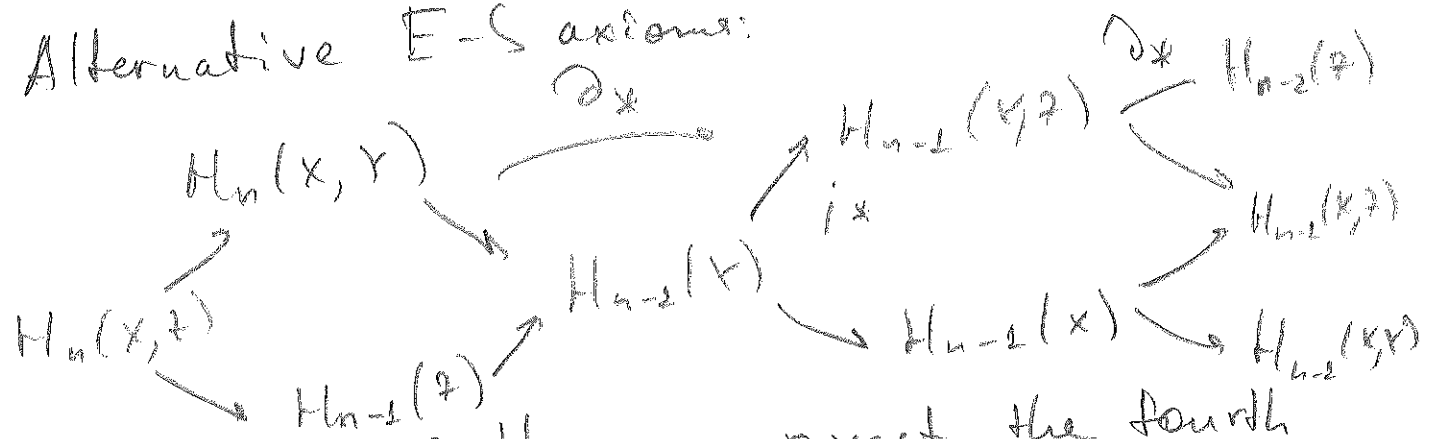 Alternative E-S axioms:
∂* ∂* H_{n-2}(Z)
H_n(X,Y) H_{n-1}(Y,Z)
j* H_{n-1}(X,Z)
H_n(X,Z) H_{n-1}(Y) H_{n-1}(X) H_{n-1}(X,Y)
H_{n-1}(Z)
the fourth